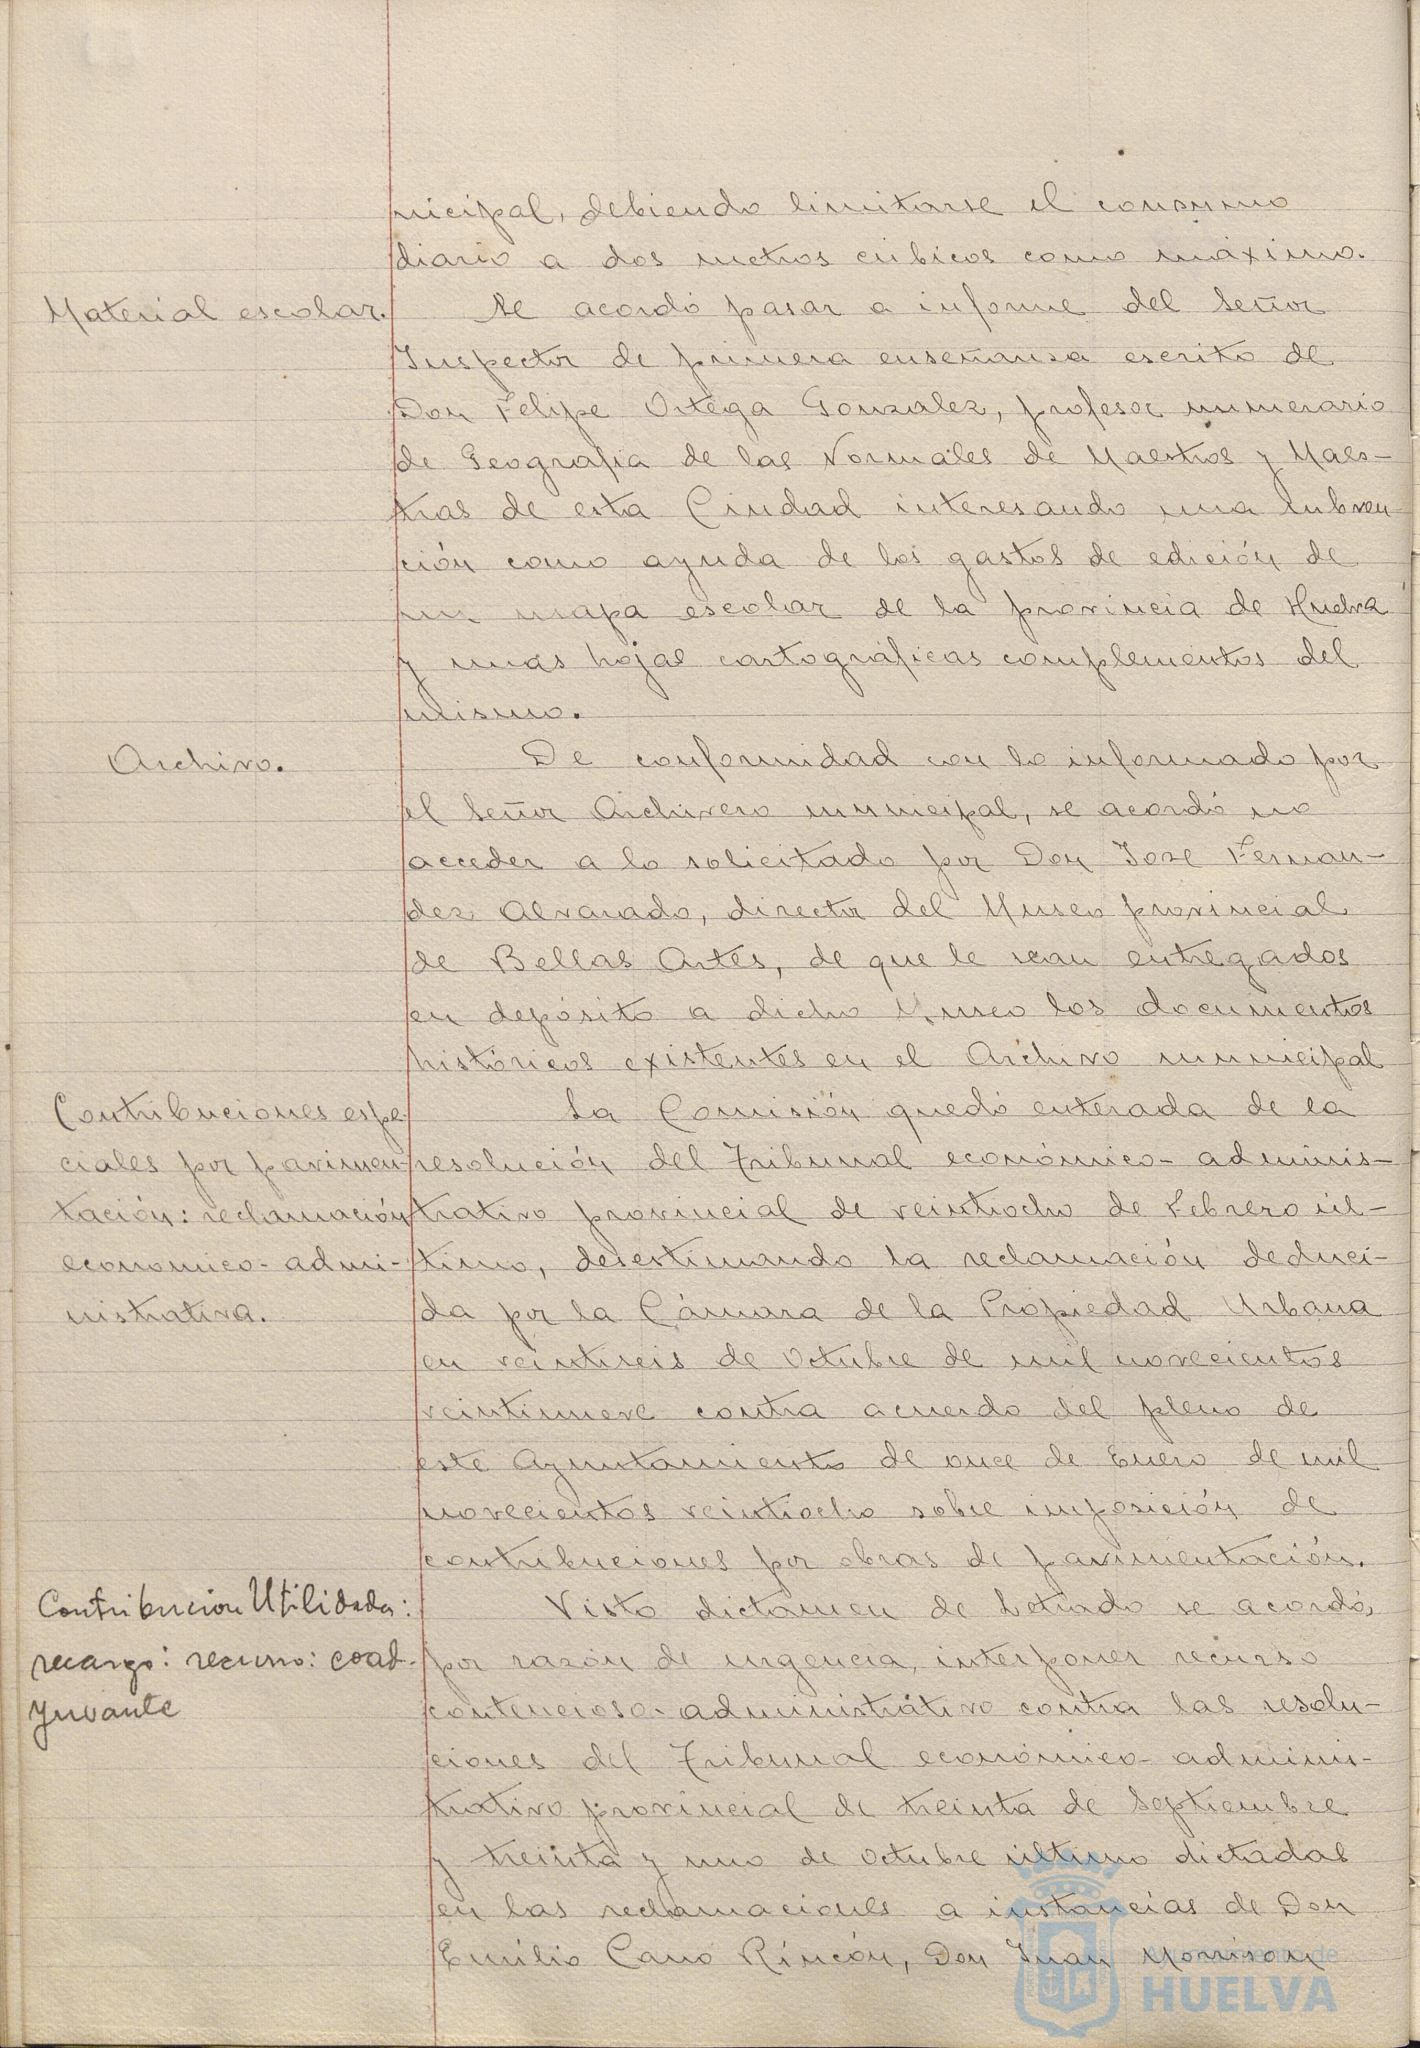 nicipal, debiendo limitarse el consumo
diario a dos metros cúbicos como máximo.
Material escolar.
Se acordó pasar a informe del Señor
Inspector de primera enseñanza escrito de
Don Felipe Ortega Gonzalez, profesor numerario
de Geografia de las Normales de Maestros y Maes-
tras de esta Ciudad interesando una subven
ción como ayuda de los gastos de edición de
un mapa escolar de la provincia de Huelva
y unas hojas cartográficas complementos del
mismo.
Archivo.
De conformidad con lo informado por
el Señor Archivero municipal, se acordó no
acceder a lo solicitado por Don Jose Fernan-
dez Alvarado, director del Museo provincial
de Bellas Artes, de que le sean entregados
en depósito a dicho Museo los documentos
históricos existentes en el Archivo municipal
Contribuciones espe
ciales por pavimen-
tación: reclamación
economico-admi-
nistrativa.
La Comisión quedó enterada de la
resolución del Tribunal económico-adminis-
trativo provincial de veintiocho de Febrero úl-
timo, desestimando la reclamación deduci-
da por la Cámara de la Propiedad Urbana
en veintiseis de Octubre de mil novecientos
veintinueve contra acuerdo del pleno de
este Ayuntamiento de once de Enero de mil
novecientos veintiocho sobre imposición de
contribuciones por obras de pavimentación.
Contribucion Utilidades:
recargo: recurso: coad-
yuvante
Visto dictamen de Letrado se acordó,
por razón de urgencia, interponer recurso
contencioso-administrátivo contra las resolu-
ciones del Tribunal económico-adminis-
trativo provincial de treinta de Septiembre
y treinta y uno de Octubre último dictadas
en las reclamaciones a instancias de Don
Emilio Cano Rincón, Don Juan Morrison
Ayuntamiento de
HUELVA